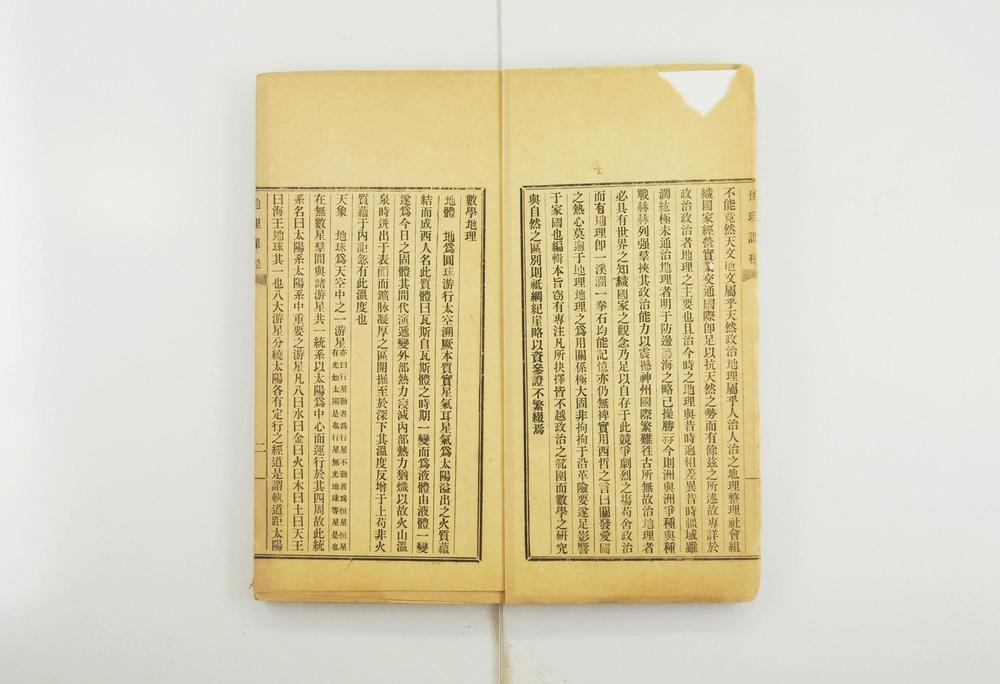 地理課程
不能竟然天文地文屬乎天然政治地理屬乎人治人治之地理整理社會組
織國家經營實業交通國際卽足以抗天然之勢而有餘茲之所述故專詳於
政治政治者地理之主要也且治今時之地理與昔時迥相差異昔時疆域雖
濶紘極未通治地理者明于防邊籌海之略已操勝算今則洲與洲爭種與種
戰赫赫列强羣挾其政治能力以震撼神州國際繁難徃古所無故治地理者
必具有世界之知識國家之觀念乃足以自存于此競爭劇烈之塲苟舍政治
而有地理卽一溪澗一拳石均能記憶亦仍無裨實用西哲之言曰關發愛國
之熱心莫逾于地理地理之爲用關係極大固非拘拘于沿革險要遂足影響
于家國也編輯本旨竊有專注凡所抉擇皆不越政治之範圍而數學之硏究
與自然之區別則祗綱紀崖略以資參證不繁綴焉
數學地理
地體　地爲圓球游行太空溯厥本質實星氣耳星氣爲太陽溢出之火質蘊
結而成西人名此質體曰瓦斯自瓦斯體之時期一變而爲液體由液體一變
遂爲今日之固體其間代演遞變外部熱力寖減內部熱力猶熾以故火山溫
泉時迸出于表面而鑛脉凝厚之區開掘至於深下其溫度反增于上苟非火
質蘊于內詎忽有此溫度也
天象　地球爲天空中之一游星亦曰行星動者爲行星不動者爲恒星恒星有光如太陽是也行星無光地球等星是也
在無數星羣間與諸游星共一統系以太陽爲中心而運行於其四周故此統
系名曰太陽系太陽系中重要之游星凡八曰水曰金曰火曰木曰土曰天王
曰海王地球其一也八大游星分繞太陽各有定行之經道是謂軌道距太陽
地理課程
二